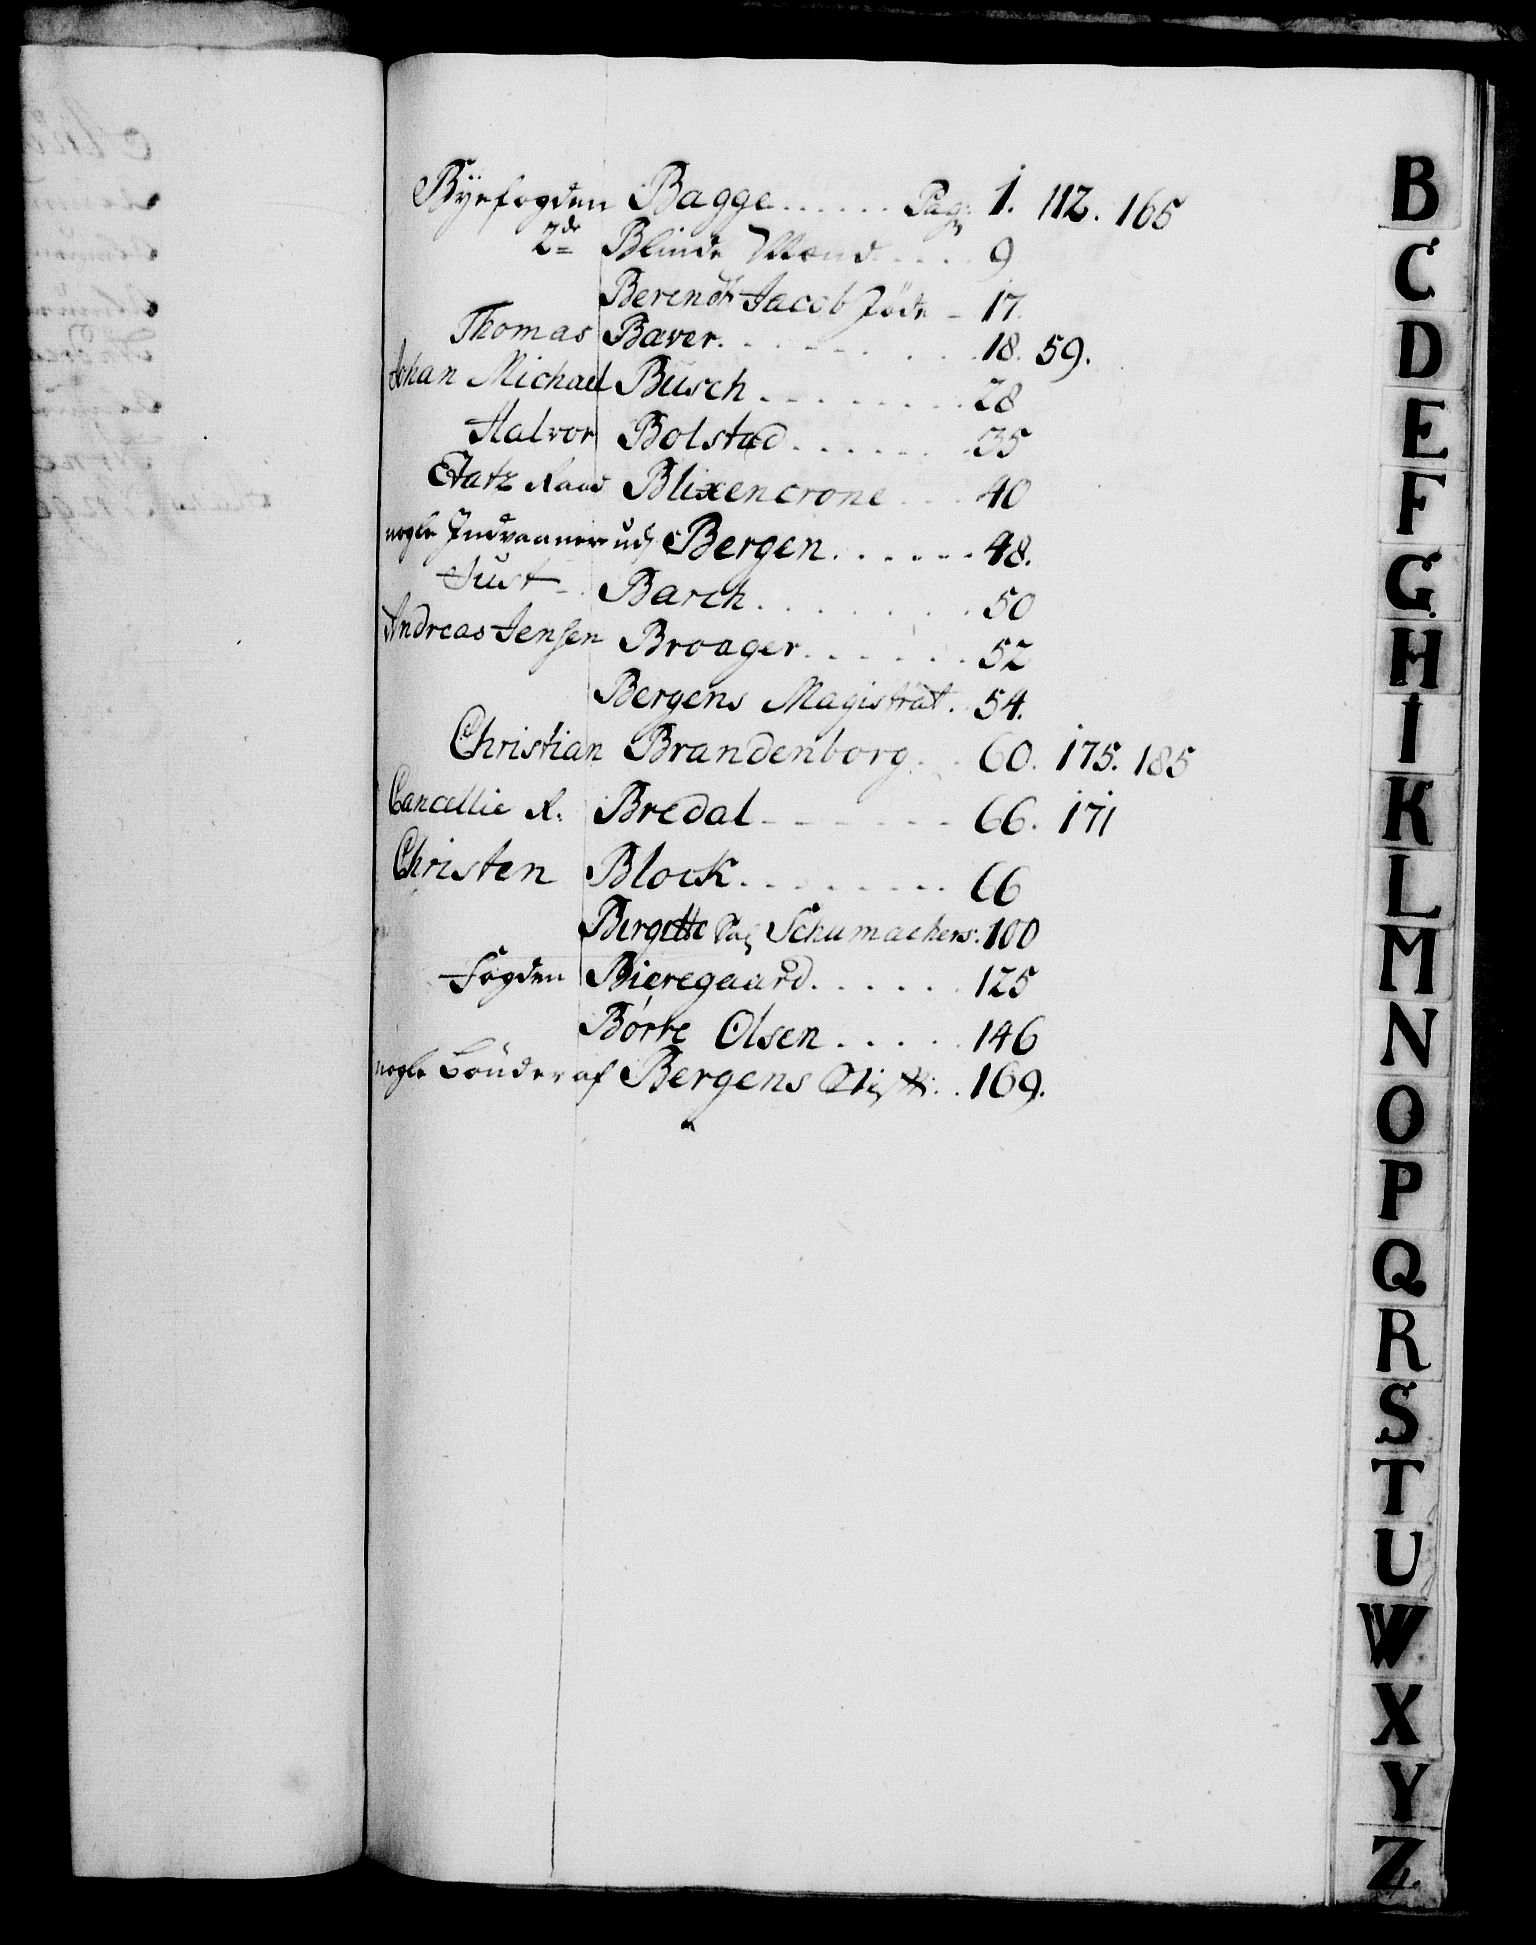 Byefogden Bagge...... Pag: 1. 112. 165
2de Blinde Mænd.... 9
Berendt Jacob Jøde - 17.
Thomas Baver......... 18. 59.
Johan Michael Busch......... 28
Halvor Bolstad....... 35
Etatz Raad Blixencrone... 40
nogle Indvaanere udj Bergen...... 48.
Just Barch........ 50
Andreas Jensen Broager...... 52
Bergens Magistrat. 54.
Christian Brandenborg.. 60. 175. 185
Cancellie R: Bredal - - - - - - 66. 171
Christen Block......... 66
Birgitte Schumachers: 100
Fogden Bieregaard...... 125
Børre Olsen..... 146
nogle Bønder af Bergens Stift: . 169.
B
C
D
E
F
G
H
I
K
L
M
N
O
P
Q
R
S
T
U
W
X
Y
Z